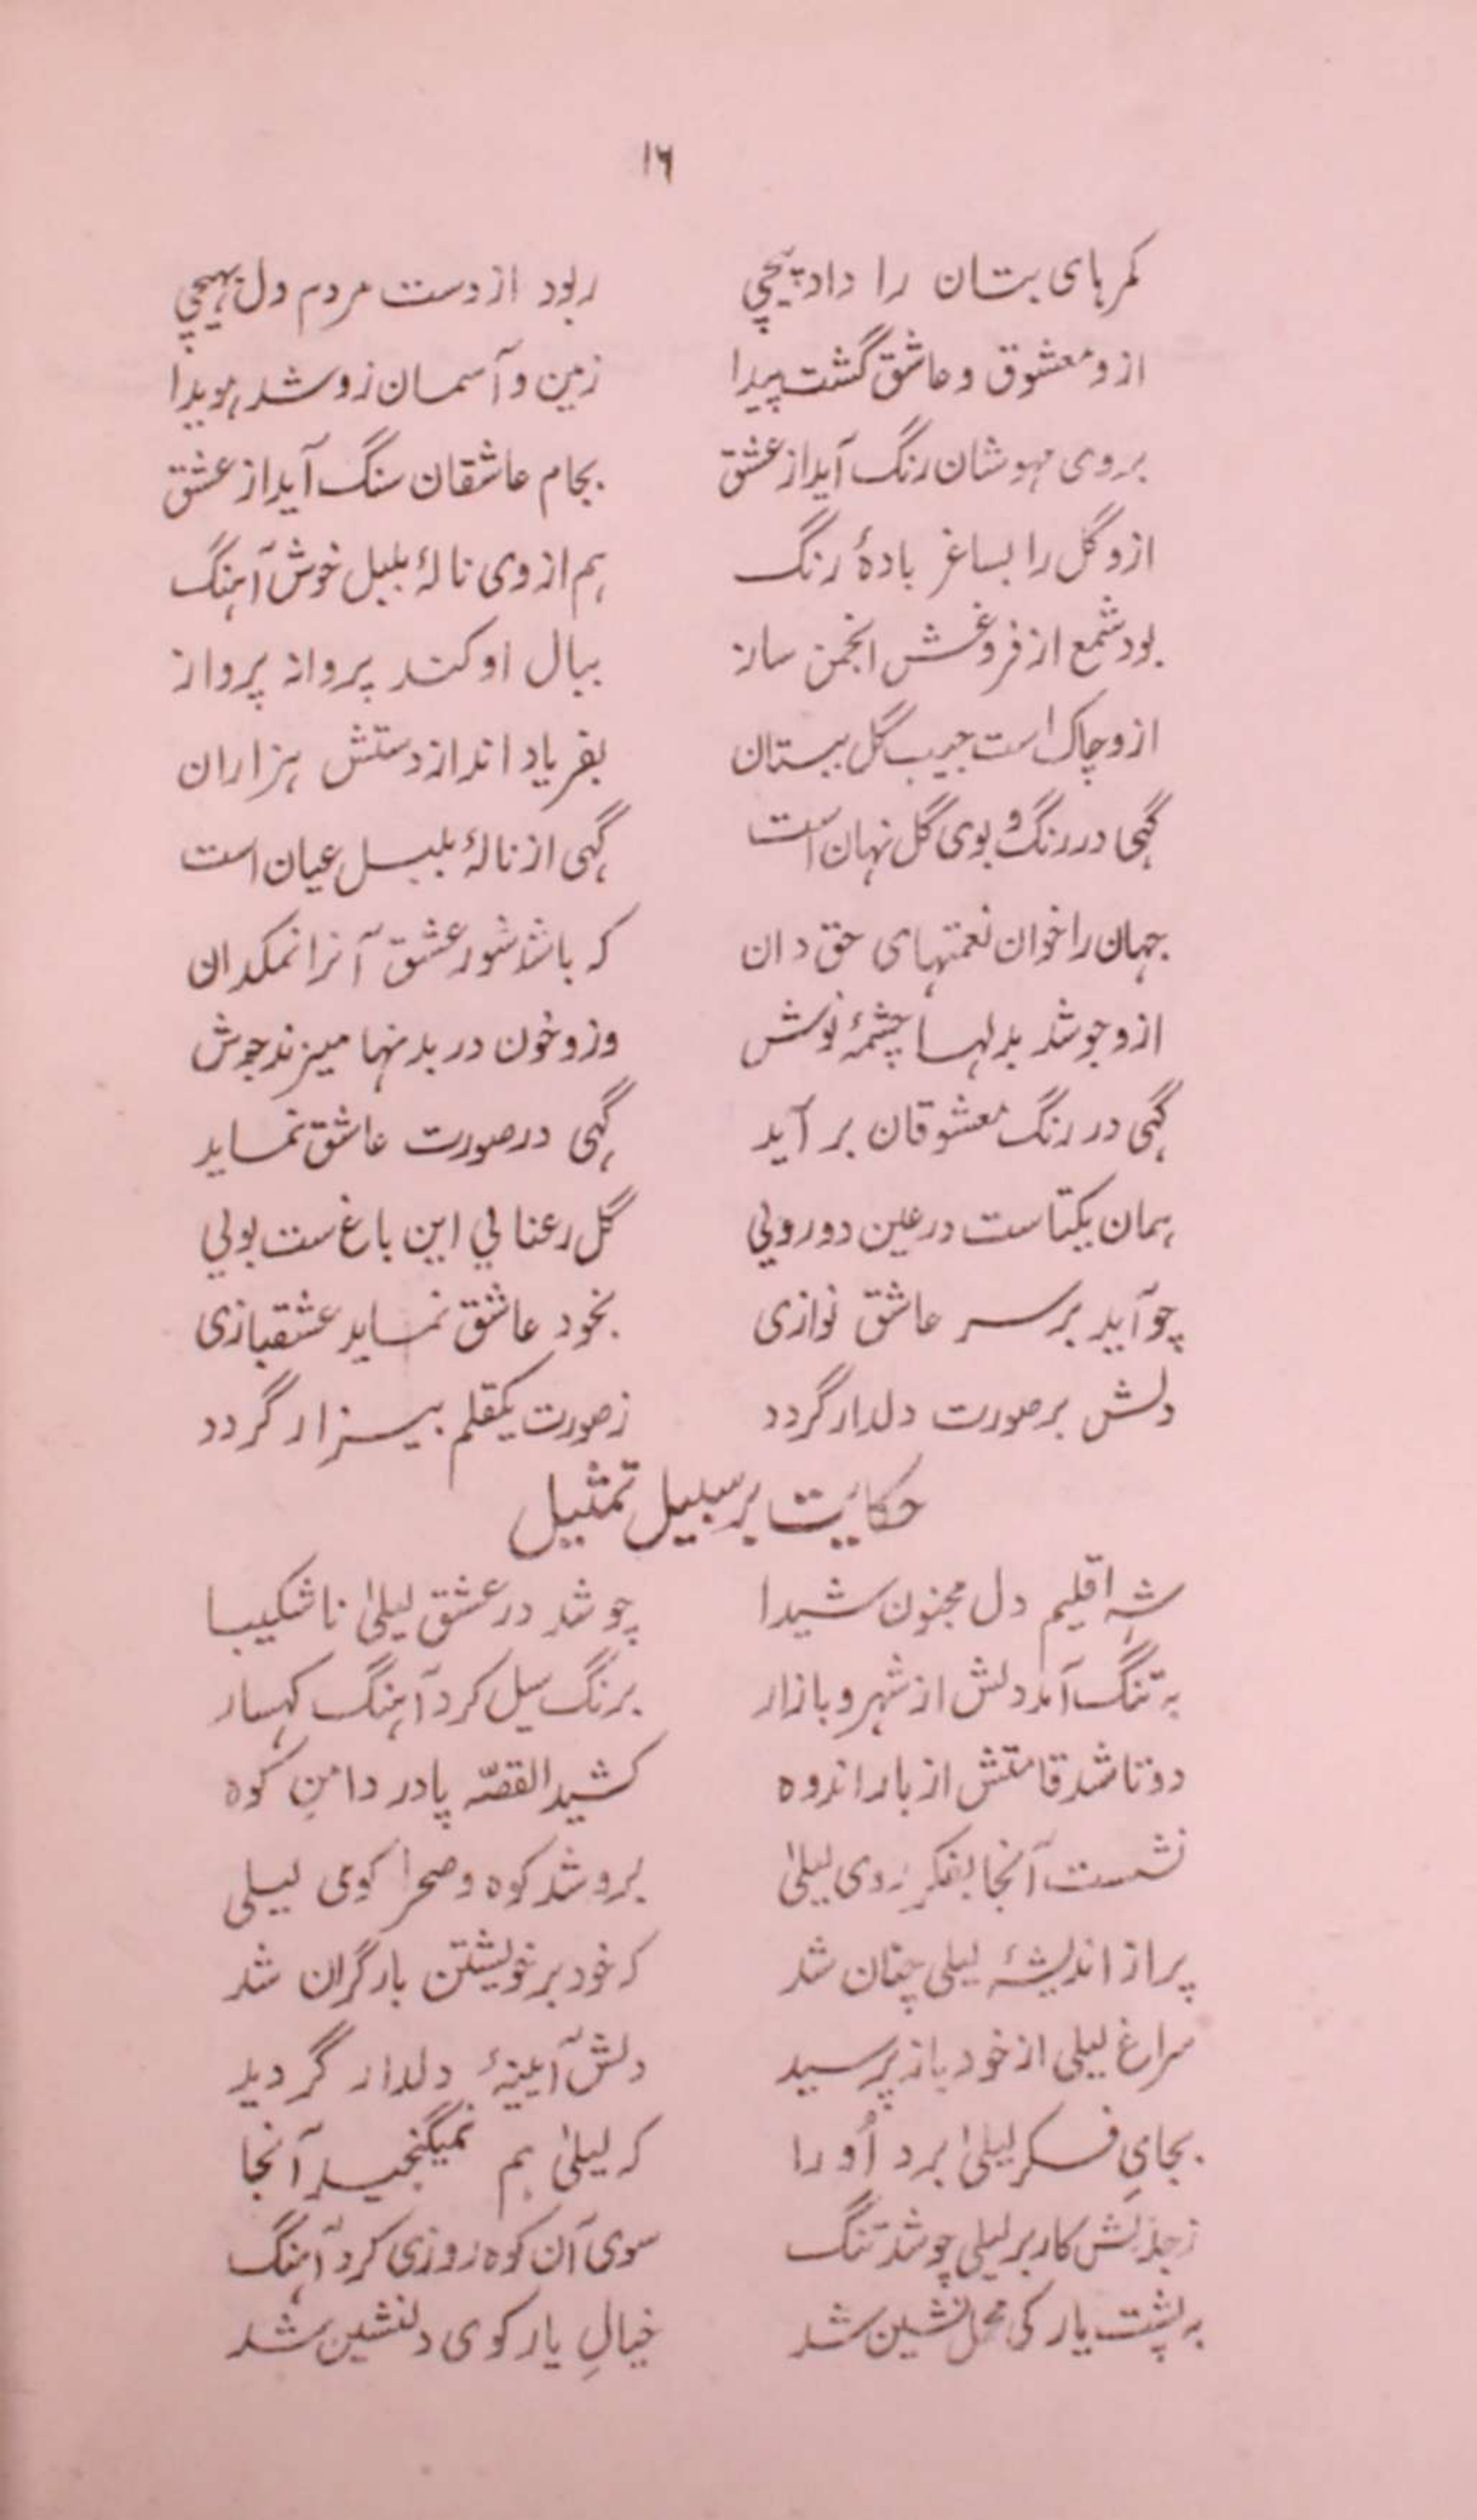 ۱۶
کمرهای بتان را داد پیچی ربود از دست مردم دل بهیچی
ازو معشوق و عاشق گشت پیدا زمین و آسمان زو شد هویدا
بروی مهوشان رنگ آید از عشق بجام عاشقان سنگ آید از عشق
ازو گل را بساغر بادهٔ رنگ هم از وی نالهٔ بلبل خوش آهنگ
بود شمع از فروغش انجمن ساز ببال او کند پروانه پرواز
ازو چاک است جیب گل ببستان بفریاد اند از دستش هزاران
گهی در رنگ و بوی گل نهان است گهی از نالهٔ بلبل عیان است
جهان را خوان نعمتهای حق دان که باشد شور عشق آنرا نمکدان
ازو جوشد بدلها چشمهٔ نوش وزو خون در بدنها میزند جوش
گهی در رنگ معشوقان بر آید گهی در صورت عاشق نماید
همان یکتاست در عین دورویي گل رعناىي این باغ ست بویي
چو آید بر سر عاشق نوازی بخود عاشق نماید عشقبازی
دلش بر صورت دلدار گردد ز صورت یکقلم بیزار گردد
حکایت بر سبیل تمثیل
شه اقلیم دل مجنون شیدا چو شد در عشق لیلیٰ ناشکیبا
به تنگ آمد دلش از شهر و بازار برنگ سیل کرد آهنگ کهسار
دوتا شد قامتش از بار اندوه کشید القصّه پا در دامنِ کوه
نشست آنجا بفکر روی لیلیٰ برو شد کوه و صحرا کوی لیلی
پر از اندیشهٔ لیلی چنان شد که خود بر خویشتن بار گران شد
سراغ لیلی از خود باز پرسید دلش آیینهٔ دلدار گردید
بجایِ فکر لیلیٰ برد اُو را که لیلیٰ هم نمیگنجید آنجا
ز جذبش کار بر لیلی چو شد تنگ سوی آن کوه روزی کرد آهنگ
به پشت یار کی محمل نشین شد خیالِ یار کوی دلنشین شد